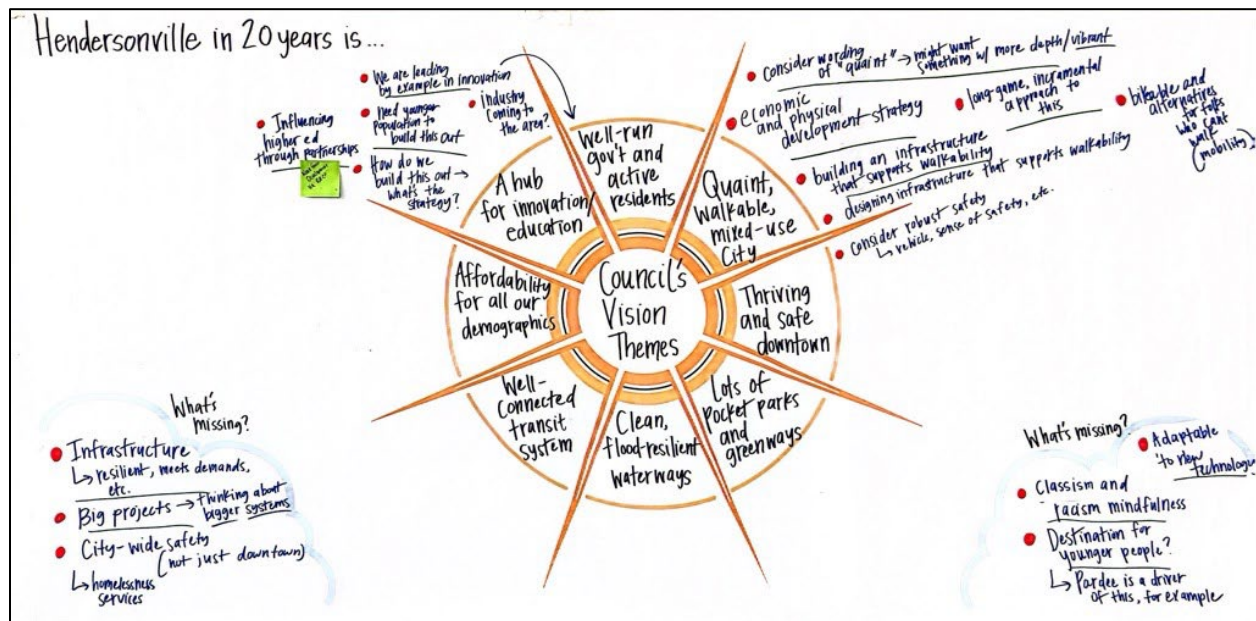 Hendersonville in 20 years is...
We are leading
by example in innovation
Need younger
population to
build this out
Industry
coming to
the area?
Influencing
higher ed
through partnerships
How do we
build this out →
what's the
strategy?
Consider wording
of "quaint" → might want
something w/ more depth/vibrant
economic
and physical
development strategy
long-game, incramental
approach to
this
bikable and
alternatives
for folks
who can't
walk
(mobility)
building an infrastructure
that supports walkability
designing infrastructure that supports walkability
Consider robust safety
↳ vehicle, sense of safety, etc.
Council's
Vision
Themes
Well-run
gov't and
active
residents
Quaint,
walkable,
mixed-use
City
Thriving
and safe
downtown
Lots of
pocket parks
and
greenways
Clean,
flood-resilient
waterways
Well-
Connected
transit
system
Affordability
for all our
demographics
A hub
for innovation/
education
What's
missing?
Infrastructure
↳ resilient, meets demands,
etc.
Big projects → thinking about
bigger systems
City-wide safety
(not just downtown)
↳ homelessness
services
What's missing?
Adaptable
to new
technology
Classism and
racism mindfulness
Destination for
younger people?
↳ Pardee is a driver
of this, for example